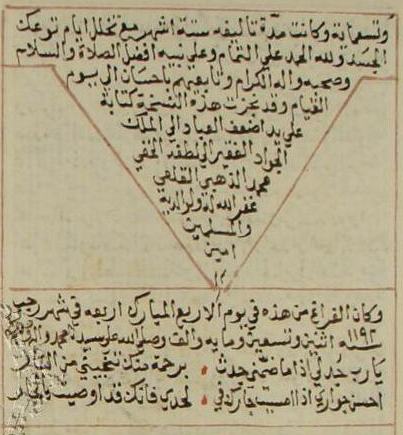 وتسعمائة وكانت مدة تاليفه ستة اشهر مع تخلل ايام توعك
الجسد ولله الحمد على التمام وعلى نبيه افضل الصلاة والسلام
وصحبه واله الكرام وتابعيهم باحسان الى يوم
القيام وقد نجزت هذه النسخة كتابة
على يد اضعف العباد الى الملك
الجواد الفقير الى لطفه الخفي
محمد الذهبي القلعي
غفر الله له ولوالديه
والمسلمين
امين
وكان الفراغ من هذه في يوم الاربع المبارك اربعه في شهر رجب
سنة ١١٩٢ اثنين وتسعين ومايه والف وصلى الله على سيدنا محمد واله
يا رب جد لي اذا ما ضمني جدث برحمة منك تنجيني من النار
احسن جواري اذا امسيت جارك في لحدي فانك قد اوصيت بالجار